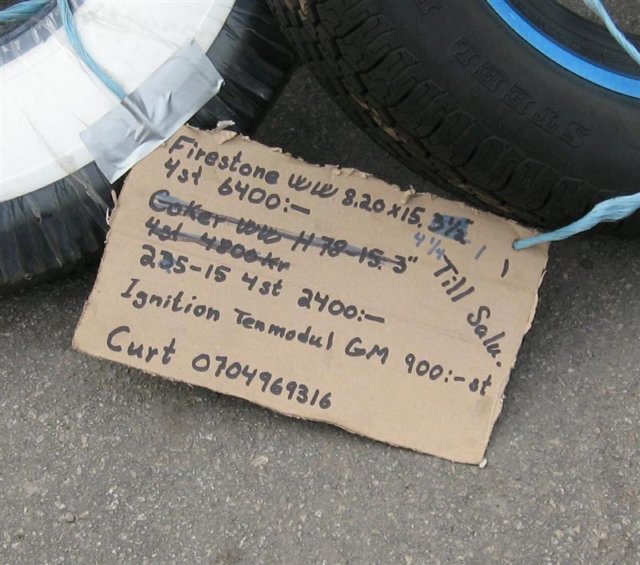 Firestone WW 8.20 x 15. 3½
4st 6400:- 4¼
Till Salu.
Coker WW H 78-15. 3"
4st 4800kr
235-15 4st 2400:-
Ignition Tenmodul GM 900:-st
Curt 0704969316
STEEL